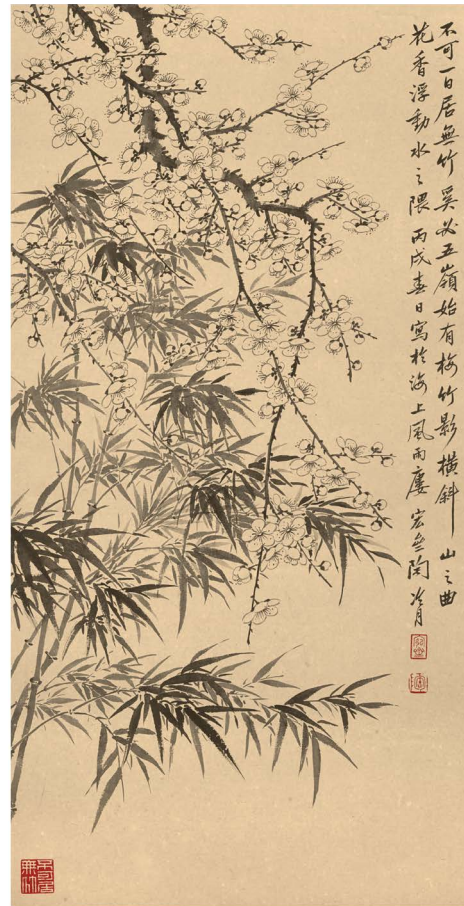 不可一日居無竹奚必五嶺始有梅竹影橫斜山之曲
花香浮動水之隈丙戌春日寫於海上風雨廔宏盦陶冷月
不可居無竹